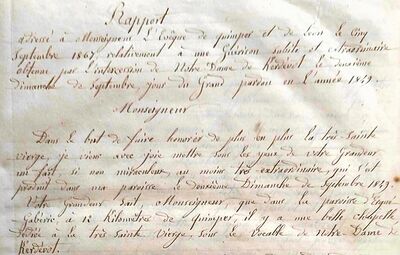 Rapport
adressé à Monseigneur L'Evêque de quimper et de Léon le Cinq
Septembre 1867 relativement à une Guérison subite et extraordinaire
obtenue par l'intercession de Notre Dame de Kerdévot le deuxième
dimanche de Septembre, jour du Grand pardon en L'année 1849.
Monseigneur
Dans le but de faire honorer de plus en plus la très Sainte
vierge, je viens avec joie mettre sous les yeux de votre Grandeur
un fait si non miraculeux, au moins très extraordinaire, qui s'est
produit dans ma paroisse le deuxième Dimanche de Septembre 1849.
Votre Grandeur sait, Monseigneur, que dans la paroisse d'Ergué
Gabéric à 12 Kilomètres de quimper, il y a une belle chapelle
dédiée à la très Sainte Vierge, sous le vocable de Notre Dame de
Kerdévot.